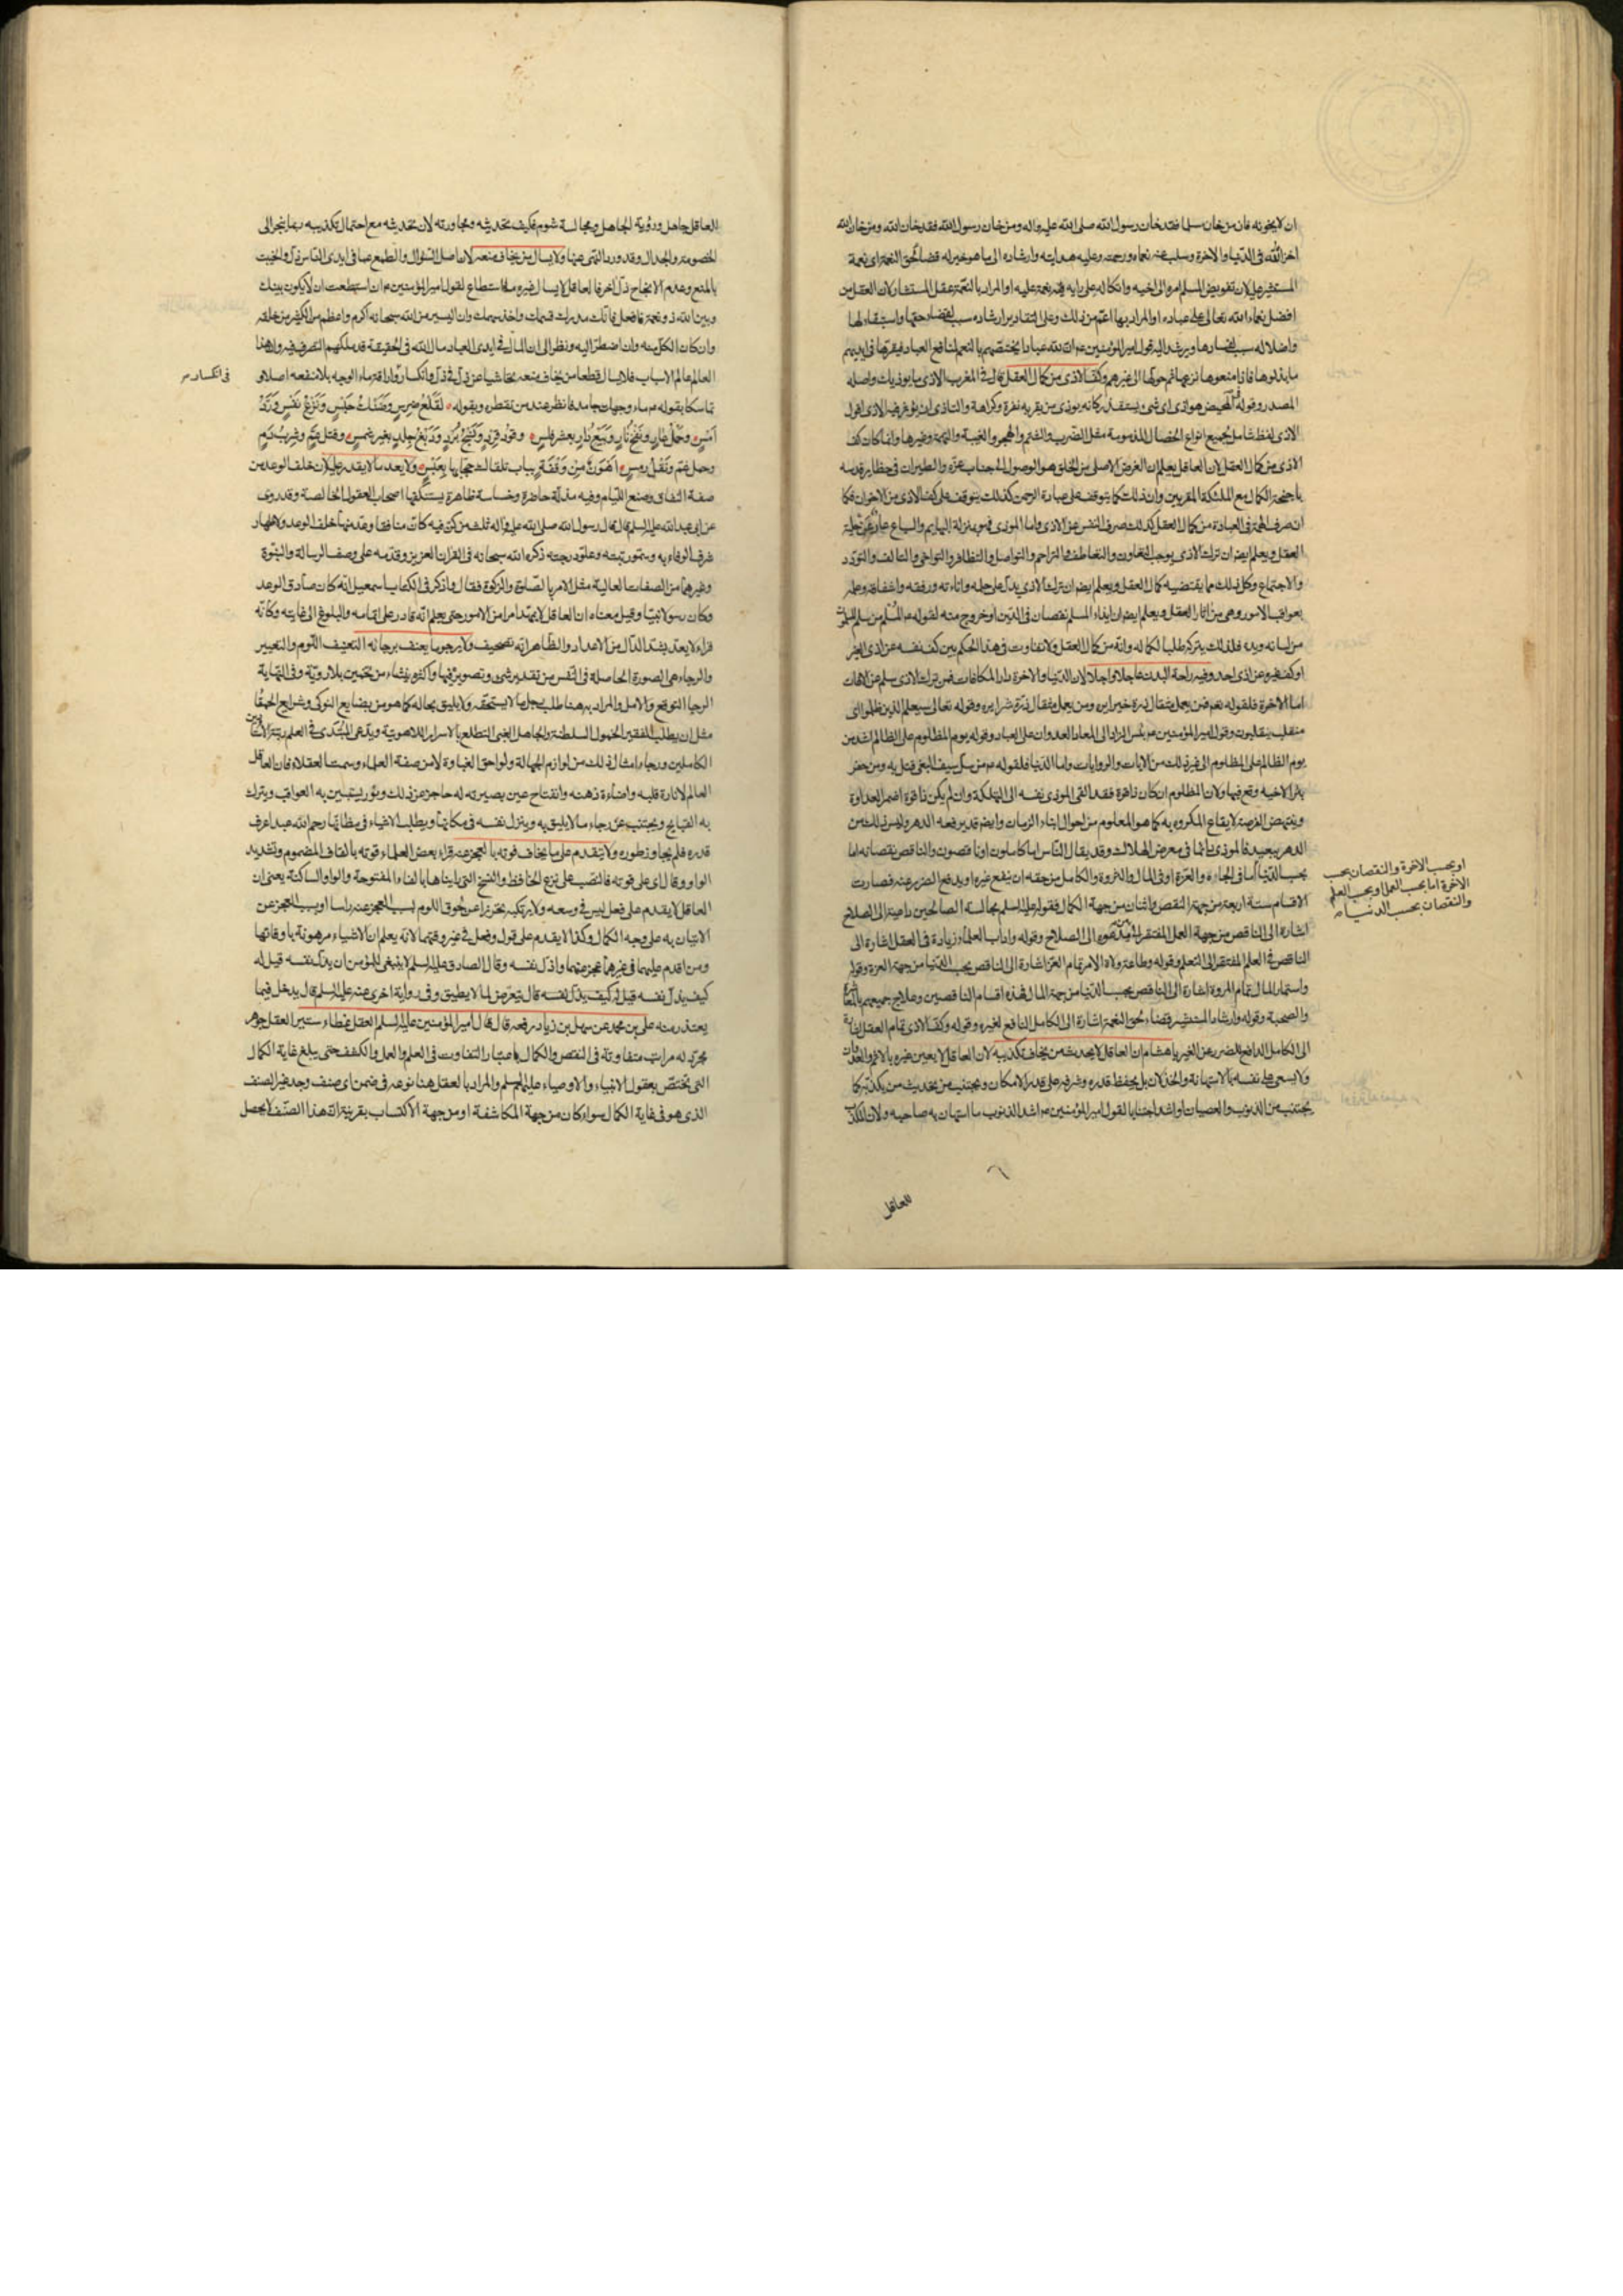 ان لا يخونه فان من خان مسلما فقد خان رسول الله صلى الله عليه واله ومن خان رسول الله فقد خان الله ومن خان الله
اخزاه الله فى الدنيا والاخرة وسلب عنه نعماه ورحمته وعليه هدايته وارشاده الى ما هو خير له قضاء لحق النعمة اى نعمة
المستشير عليه لان تفويض المسلم امره الى اخيه واتكاله على رايه فيه نعمة عليه او المراد بالنعمة عقل المستشار لان العقل من
افضل نعماء الله تعالى على عباده او المراد بها اعم من ذلك وعلى التقادير ارشاده سبب لقضاء حقها واستبقاء لها
واضلاله سبب لفسادها ويرشد اليه قول امير المؤمنين ع ان لله عبادا يختصهم بالنعم لمنافع العباد فيقرها فى ايديهم
ما بذلوها فاذا منعوها نزعها ثم حولها الى غيرهم وكف الاذى من كمال العقل قال فى المغرب الاذى ما يوذيك واصله
المصدر وقوله فى المحيض هو اذى اى شئ يستقذر كانه يوذى من يقربه نفرة وكراهة والتاذى ان يؤثر فيه الاذى اقول
الاذى لفظ شامل لجميع انواع الخصال المذمومة مثل الضرب والشتم والهجر والغيبة والتهمة وغيرها وانما كان كف
الاذى من كمال العقل لان العاقل يعلم ان الغرض الاصلى من الخلق هو الوصول الى جناب عزه والطيران فى حظاير قدسه
باجنحة الكمال مع الملئكة المقربين وان ذلك كما يتوقف على عبادة الرحمن كذلك يتوقف على كف الاذى من الاخوان فكما
ان صرف الهمة فى العبادة من كمال العقل كذلك صرف النفس عن الاذى واما الموذى فهو بمنزلة البهايم والسباع عار عن حلية
العقل ويعلم ايضا ان ترك الاذى يوجب التعاون والتعاطف والتراحم والتواصل والتظافر والتواخى والتالف والتودد
والاجتماع وكل ذلك مما يقتضيه كمال العقل ويعلم ايضا ان ترك الاذى يدل على حلمه واناءته ورفقه واشفاقه وعلمه
بعواقب الامور وهى من اثار العقل ويعلم ايضا ان ايذاء المسلم نقصان فى الدين او خروج منه لقوله ع المسلم من سلم المسلمون
من لسانه ويده فلذلك يتركه طلبا لكماله وانه من كمال العقل ولا تفاوت فى هذا الحكم بين كف نفسه عن اذى الغير
او كف غيره عن اذى احد وفيه راحة البدن عاجلا واجلا لان الدنيا والاخرة دارا المكافات فمن ترك الاذى سلم عن الافات
اما الاخرة فلقوله نعم فمن يعمل مثقال ذرة خيرا يره ومن يعمل مثقال ذرة شرا يره وقوله تعالى سيعلم الذين ظلموا اى
منقلب ينقلبون وقول امير المؤمنين ع بئس الزاد الى المعاد العدوان على العباد وقوله يوم المظلوم على الظالم اشد من
يوم الظالم على المظلوم الى غير ذلك من الايات والروايات واما الدنيا فلقوله ع من سل سيف البغى قتل به ومن حفر
بئرا لاخيه وقع فيها ولان المظلوم ان كان ذا قوة فقد القى الموذى نفسه الى التهلكة وان لم يكن ذا قوة اضمر العداوة
وينتهض الفرصة لايقاع المكروه به كما هو المعلوم من احوال ابناء الزمان وايضا قد يرفعه الدهر وليس ذلك من
الدهر ببعيد فالموذى دائما فى معرض الهلاك وقد يقال الناس اما كاملون او ناقصون والناقص نقصانه اما
بحسب الدنيا اما فى الجاه والعزة او فى المال والثروة والكامل من حقه ان ينفع غيره او يدفع الضرر عنه فصارت
الاقسام ستة اربعة من جهة النقص واثنان من جهة الكمال فقوله عليه السلم مجالسة الصالحين داعية الى الصلاح
اشارة الى الناقص من جهة العمل المفتقر الى من يدعوه الى الصلاح وقوله واداب العلماء زيادة فى العقل اشارة الى
الناقص فى العلم المفتقر الى التعلم وقوله وطاعة ولاة الامر تمام العز اشارة الى الناقص بحسب الدنيا من جهة العزة وقوله
واستثمار المال تمام المروة اشارة الى الناقص بحسب الدنيا من جهة المال فهذه اقسام الناقصين وعلاج جميعهم بالمعاشرة
والصحبة وقوله وارشاد المستشير قضاء لحق النعمة اشارة الى الكامل النافع لغيره وقوله وكف الاذى تمام العقل اشارة
الى الكامل الدافع للضرر عن الغير يا هشام ان العاقل لا يحدث من يخاف تكذيبه لان العاقل لا يعين غيره بالاثم والعدوان
ولا يسعى على نفسه بالاستهانة والخذلان بل يحفظ قدره وشرفه على قدر الامكان ويجتنب من تحديث من يكذبه كما
يجتنب من الذنوب والعصيان او اشد اجتنابا لقول امير المؤمنين ع اشد الذنوب ما استهان به صاحبه ولان المكذب
للعاقل
او بحسب الاخرة والنقصان بحسب
الاخرة اما بحسب العمل او بحسب العلم
والنقصان بحسب الدنيا
للعاقل جاهل ورؤية الجاهل ومجالسته شوم فكيف تحديثه ومحاورته ولان تحديثه مع احتمال تكذيبه ربما ينجر الى
الخصومة والجدال وقد ورد النهى عنها ولا يسال من يخاف منعه لان اصل السؤال والطمع عما فى ايدى الناس ذل والخيبة
بالمنع وعدم الانجاح ذل اخر فالعاقل لا يسال غيره ما استطاع لقول امير المؤمنين ع ان استطعت ان لا يكون بينك
وبين الله ذو نعمة فافعل فانك مدرك قسمك واخذ سهمك وان اليسير من الله سبحانه اكرم واعظم من الكثير من خلقه
وان كان الكل منه وان اضطر اليه ونظر الى ان المال فى ايدى العباد مال الله فى الحقيقة قد ملكهم التصرف فيه وان هذا
العالم عالم الاسباب فلا يسال قطعا من يخاف منعه تحاشيا عن ذل فى ذل وانكسار واراقة ماء الوجه بلا منفعة اصلا و
فى انكسار
تماسكا بقوله ع ماء وجهك جامد فانظر عند من تقطره وبقوله لقلع ضرس وضنك حبس ونزع نفس ورد
امس وحمل عار ونفخ نار وبيع دار بعشر فلس وقود قرد ونسج برد ودبغ جلد بغير شمس وقتل عم وشرب سم
وحمل غم ونقل رمس اهون من وقفة بباب تلقاك حجابها بعبس ولا يعد ما لا يقدر عليه لان خلف الوعد من
صفة النفاق وصنع اللئام وفيه مذلة حاضرة وخساسة ظاهرة يستنكفها اصحاب العقول الخالصة وقد روى
عن ابى عبد الله عليه السلم قال قال رسول الله صلى الله عليه واله ثلث من كن فيه كان منافقا وعد منها خلف الوعد ولاظهار
شرف الوفاء به وسمو رتبته وعلو درجته ذكره الله سبحانه فى القران العزيز وقدمه على وصف الرسالة والنبوة
وغيرهما من الصفات العالية مثل الامر بالصلوة والزكوة فقال واذكر فى الكتاب اسمعيل انه كان صادق الوعد
وكان رسولا نبيا وقيل معناه ان العاقل لا يعد امرا من الامور حتى يعلم انه قادر على اتمامه والبلوغ الى غايته وكانه
قراءه لا يعد بشد الدال من الاعداد والظاهر انه تصحيف ولا يرجو ما يعنف برجائه التعنيف اللوم والتعيير
والرجاء هى الصورة الحاصلة فى النفس من تقدير شئ وتصويره فيها واكثره ينشاء من تخمين بلا روية وفى النهاية
الرجاء التوقع والامل والمراد به هنا طلب رجل ما لا يستحقه ولا يليق بحاله كما هو من بضايع النوكى وشرايع الحمقا
مثل ان يطلب الفقير الخمول السلطنة والجاهل الغبى التطلع بالاسرار اللاهوتية ويدعى المبتدى فى العلم رتبة الاستادين
الكاملين ورجاء امثال ذلك من لوازم الجهالة ولواحق الغباوة لا من صفة العلماء وسمت العقلاء فان العاقل
العالم لانارة قلبه واضاءة ذهنه وانفتاح عين بصيرته له حاجز عن ذلك ونور يستبين به العواقب ويترك
به القبايح ويجتنب عن رجاء ما لا يليق به وينزل نفسه فى مكانها ويطلب الاشياء فى مظانها رحم الله عبدا عرف
قدره فلم يتجاوز طوره ولا يتقدم على ما يخاف فوته بالعجز عنه قراء بعض العلماء قوته بالقاف المضموم وتشديد
الواو وقال اى على قوته فالنصب على نزع الخافظ والنسخ التى رايناها بالفاء المفتوحة والواو الساكنة يعنى ان
العاقل لا يقدم على فعل ليس فى وسعه ولا يرتكبه تحرزا عن لحوق اللوم بسبب العجز عنه راسا او بسبب العجز عن
الاتيان به على وجه الكمال وكذا لا يقدم على قول وفعل فى غير وقتهما لانه يعلم ان الاشياء مرهونة باوقاتها
ومن اقدم عليهما فى غيرها عجز عنهما واذل نفسه وقال الصادق عليه السلم لا ينبغى للمؤمن ان يذل نفسه قيل له
كيف يذل نفسه قال يتعرض لما لا يطيق وفى رواية اخرى عنه عليه السلم قال يدخل فيما
يعتذر منه على بن محمد عن سهل بن زياد رفعه قال قال امير المؤمنين عليه السلم العقل غطاء ستير العقل جوهر
مجرد له مراتب متفاوتة فى النقص والكمال باعتبار التفاوت فى العلم والعمل والكشف حتى يبلغ غاية الكمال
التى تختص بعقول الانبياء والاوصياء عليهم السلم والمراد بالعقل هنا نوعه فى ضمن اى صنف وجد غير الصنف
الذى هو فى غاية الكمال سواء كان من جهة المكاشفة او من جهة الاكتساب بقرينة ان هذا الصنف لا يحصل